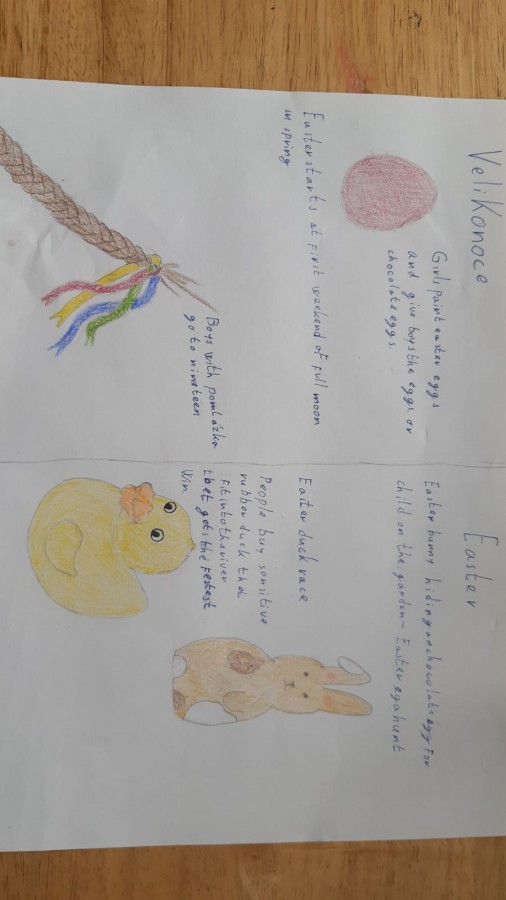 Velikonoce
Girls paint easter eggs
and give boys the eggs or
chocolate eggs.
Easter starts at first weekend of full moon
in spring
Boys with pomlázka
go to nineteen
Easter
Easter bunny hiding an chocolate egg for
child on the garden - Easter egg hunt
Easter duck race
People buy
rubber duck
fit into the river
that gets the festest
win